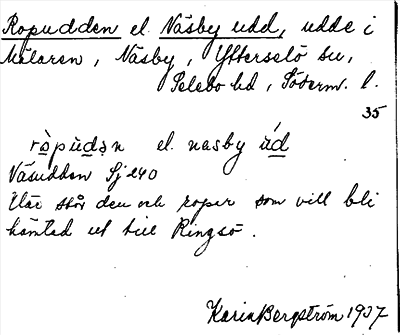 Ropudden el. Näsby udd, udde i
Mälaren, Näsby, Ytterselö sn,
Selebo hd, Söderm. l.
35
ròpùdən el. nasby úd
Väsudden Sj 240
Där står den och roper som vill bli
hämtad ut till Ringsö.
Karin Bergström 1937